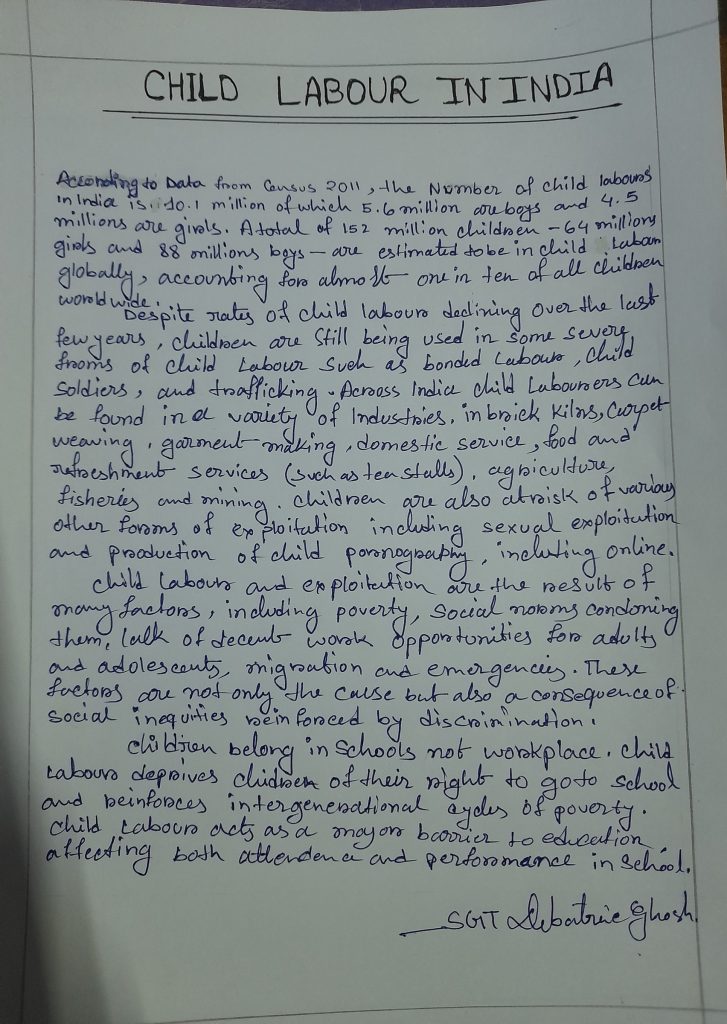 CHILD LABOUR IN INDIA
According to Data from Census 2011, the Number of child labours
in India is 10.1 million of which 5.6 million are boys and 4.5
millions are girls. A total of 152 million children - 64 millions
girls and 88 millions boys - are estimated to be in child Labour
globally, accounting for almost one in ten of all children
worldwide.
Despite rates of child labour declining over the last
few years, children are still being used in some severe
froms of child Labour such as bonded Labour, child
soldiers, and trafficking. Across India child Labourers can
be found in a variety of Industries, in brick kilns, Carpet
weaving, garment making, domestic service, food and
refreshment services (such as tea stalls), agriculture,
fisheries and mining. children are also at risk of various
other forms of exploitation including sexual exploitation
and production of child pornography, including online.
child Labour and exploitation are the result of
many factors, including poverty, social norms condoning
them, lalk of decent work opportunities for adults
and adolescents, migration and emergencies. These
factors are not only the cause but also a consequence of
social inequities reinforced by discrimination.
children belong in schools not workplace. child
Labour deprives children of their right to go to school
and reinforces intergenerational cycles of poverty.
child Labour acts as a major barrier to education,
affecting both attendence and performance in school.
SGT Debatrie Ghosh